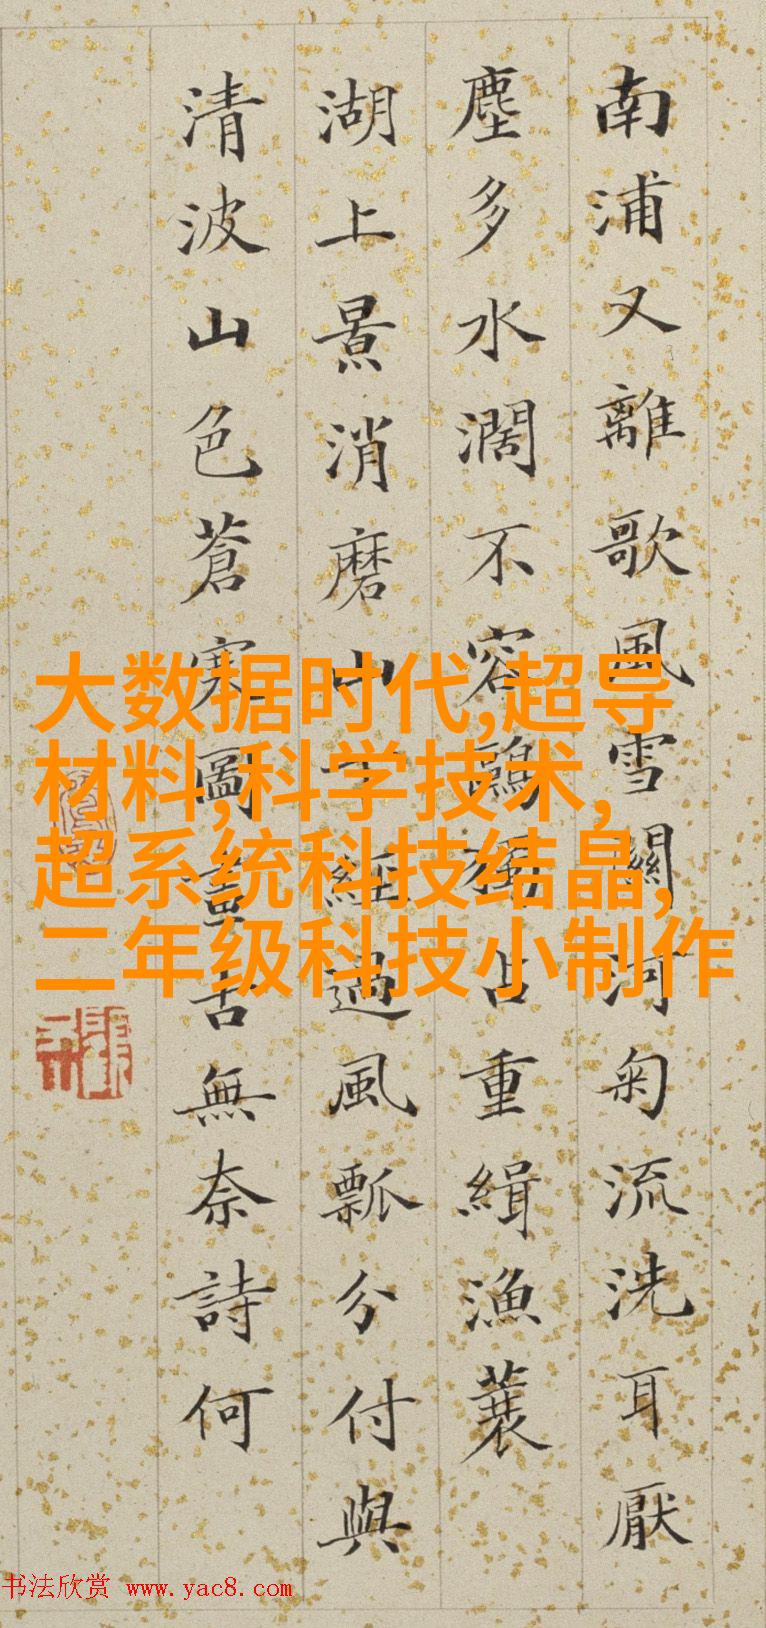 南浦又離歌風雪關河匊流洗耳厭
塵多水濶不容鷗獨占重緝漁蓑
湖上景消磨山經過風瓢分付與
清波山色蒼寒圖畫古無奈詩何
大数据时代,超导
材料,科学技术,
超系统科技结晶,
二年级科技小制作
书法欣赏 www.yac8.com